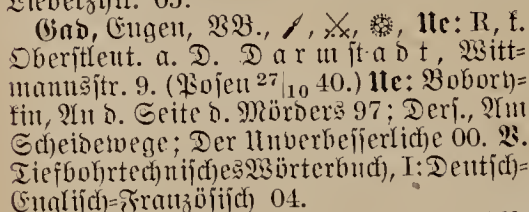 Lieberzstr. 65.
Gad, Eugen, VB., Ue: R, k.
Oberstleut. a. D. Darmstadt, Witt-
mannstr. 9. (Posen 27|10 40.) Ue: Bobory-
kin, An d. Seite d. Mörders 97; Ders., Am
Scheidewege; Der Unverbesserliche 00. V.
Tiefbohrtechnisches Wörterbuch, I: Deutsch-
Englisch-Französisch 04.